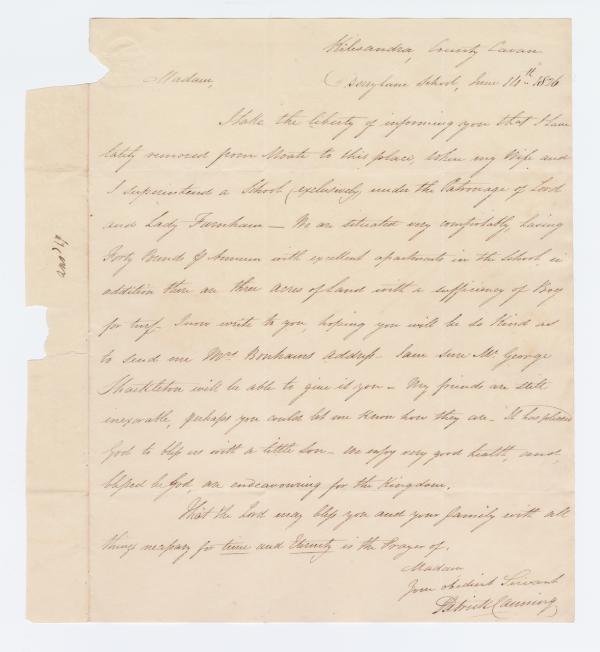 Kilesandra, County Cavan
Madam, Derrylane School, June 14th 1826
I take the liberty of informing you that I have
lately removed from Moate to this place, where my Wife and
I superintend a School (exclusively) under the Patronage of Lord
and Lady Farnham — We are situated very comfortably, having
Forty Pounds Pr Annum with excellent apartments in the School, in
addition there are three acres of Land with a sufficiency of Bog
for turf. I now write to you, hoping you will be so kind as
to send me Mrs Bonhams address. I am sure Mr. George
Shackleton will be able to give it you — My friends are still
inexorable, perhaps you could let me know how they are — It has pleased
God to bless us with a little son — We enjoy very good health, and,
blessed be God, are endeavouring for the Kingdom.
That the Lord may bless you and your family with all
things necessary for time and Eternity is the Prayer of,
Madam
Your obedient Servant
Patrick Canning